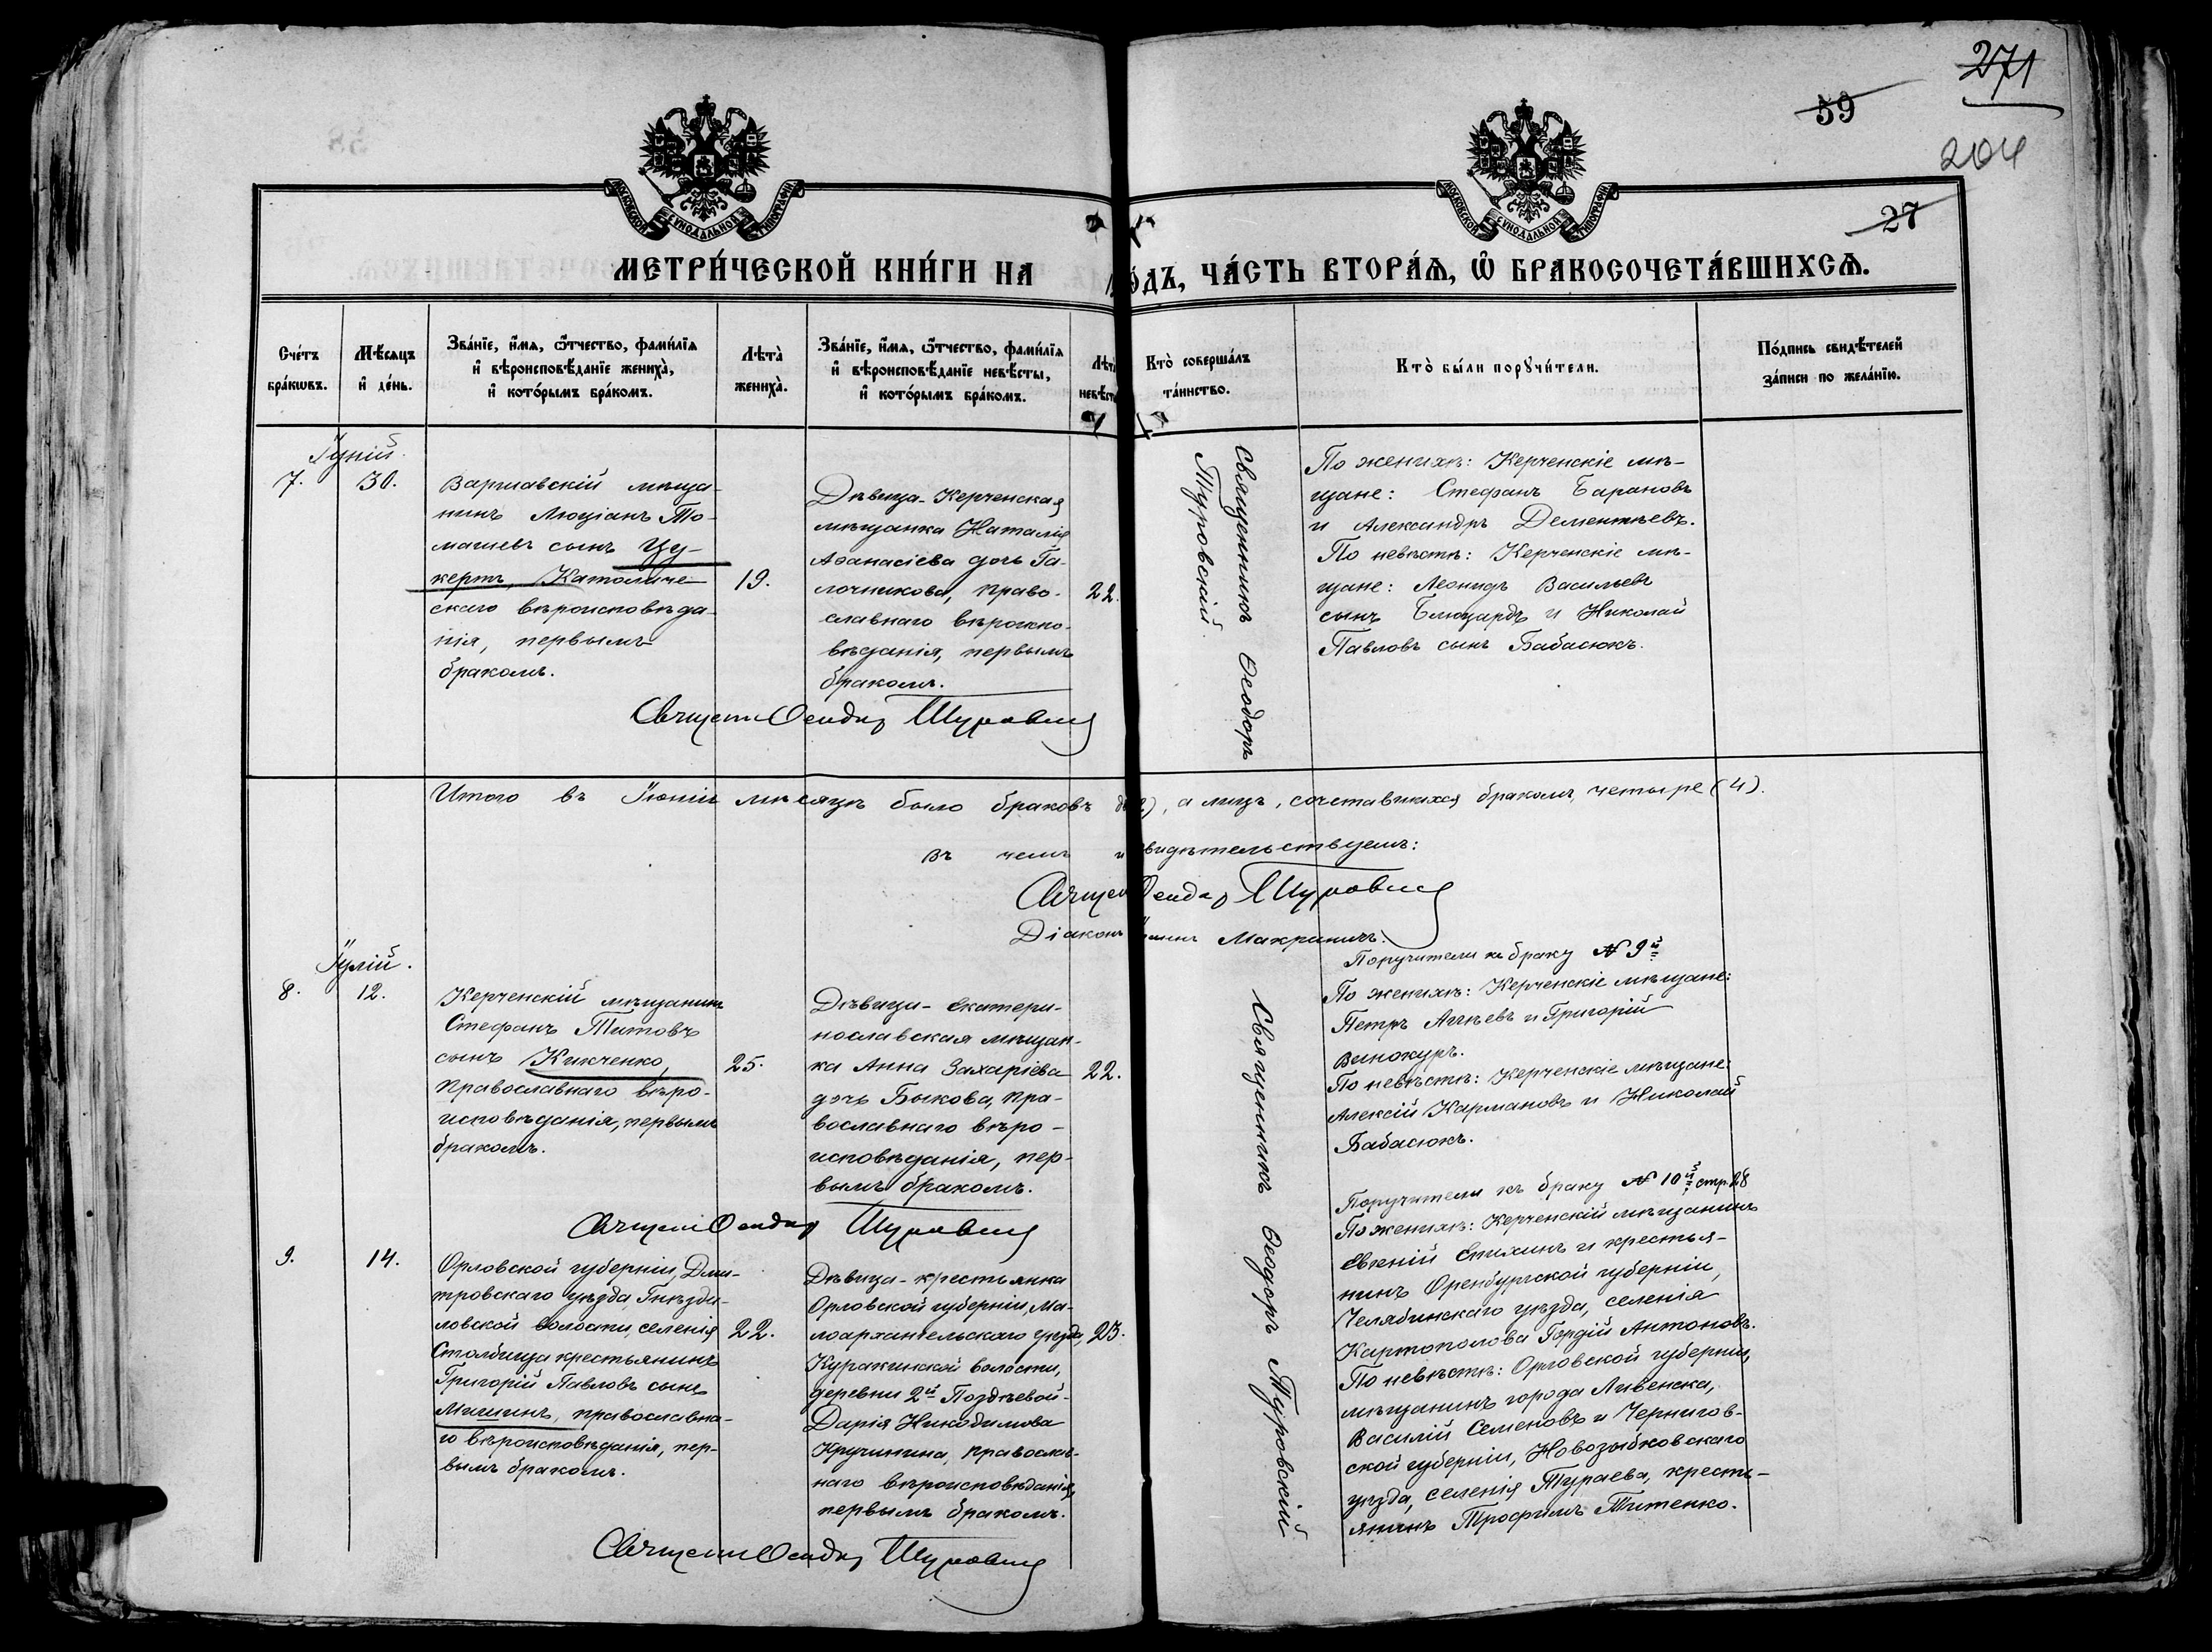 271
59
204
27
МОСКОВСКОЙ СѴНОДАЛЬНОЙ ТИПОГРАФІИ
МОСКОВСКОЙ СѴНОДАЛЬНОЙ ТИПОГРАФІИ
МЕТРИ́ЧЕСКОЙ КНИ́ГИ НА
ГО́ДЪ, ЧА́СТЬ ВТОРА́Ѧ, Ѽ БРАКОСОЧЕТА́ВШИХСѦ.
Сче́тъ
бра́кѡвъ.
Мѣ́сѧцъ
и҆ де́нь.
Зва́нїе, и҆́мѧ, ѻ҆́тчество, фами́лїѧ
и҆ вѣроисповѣ́данїе жениха̀,
и҆ кото́рымъ бра́комъ.
Лѣта̀
жениха̀.
Зва́нїе, и҆́мѧ, ѻ҆́тчество, фами́лїѧ
и҆ вѣроисповѣ́данїе невѣ́сты,
и҆ кото́рымъ бра́комъ.
Лѣта̀
невѣ́сты
Кто̀ соверша́лъ
та́инство.
Кто̀ бы́ли порꙋчи́тели.
По́дпись свидѣ́телей
за́писи по жела́нїю.
Іуній.
7.
30.
Варшавскій мѣща-
нинъ Люціанъ То-
машевъ сынъ Цу-
кертъ, Католиче-
скаго вѣроисповѣда-
нія, первымъ
бракомъ.
19.
Дѣвица - Керченская
мѣщанка Наталія
Аѳанасіева дочь Га-
лочникова, право-
славнаго вѣроиспо-
вѣданія, первымъ
бракомъ.
22.
Священникъ Ѳеодоръ
Туровскій.
По женихѣ: Керченскіе мѣ-
щане: Стефанъ Барановъ
и Александръ Дементьевъ.
По невѣстѣ: Керченскіе мѣ-
щане: Леонидъ Васильевъ
сынъ Блюцардъ и Николай
Павловъ сынъ Бабасюкъ.
Священ Ѳеодор Туровскій
Итого въ Іюніи мѣсяцѣ было браковъ два (2), а лицъ, сочетавшихся бракомъ, четыре (4).
Въ чемъ и свидѣтельствуемъ:
Священ Ѳеодор Туровскій
Діаконъ Макринич.
Іулій.
8.
12.
Керченскій мѣщанинъ
Стефанъ Титовъ
сынъ Кикченко,
православнаго вѣро-
исповѣданія, первымъ
бракомъ.
25.
Дѣвица - Екатери-
нославская мѣщан-
ка Анна Захаріева
дочь Быкова, пра-
вославнаго вѣро-
исповѣданія, пер-
вымъ бракомъ.
22.
Священникъ Ѳеодоръ Туровскій
Поручители къ браку № 9й
По женихѣ: Керченскіе мѣщане:
Петръ Агѣевъ и Григорій
Винокуръ.
По невѣстѣ: Керченскіе мѣщане:
Алексій Кармановъ и Николай
Бабасюкъ.
Священ Ѳеодор Туровскій
9.
14.
Орловской губерніи, Дми-
тровскаго уѣзда, Гнѣзди-
ловской волости, селенія
Столбища крестьянинъ
Григорій Павловъ сынъ
Мишинъ, православна-
го вѣроисповѣданія, пер-
вымъ бракомъ.
22.
Дѣвица - крестьянка
Орловской губерніи, Ма-
лоархангельскаго уѣзда,
Куракинской волости,
деревни 2й Поздѣевой -
Дарія Никодимова
Кручинина, православ-
наго вѣроисповѣданія,
первымъ бракомъ.
23.
Поручители къ браку № 10й, стр. 28
По женихѣ: Керченскій мѣщанинъ
Евгеній Епихинъ и крестья-
нинъ Оренбургской губерніи,
Челябинскаго уѣзда, селенія
Картополова Гордій Антоновъ.
По невѣстѣ: Орловской губерніи,
мѣщанинъ города Ливенска,
Василій Семеновъ и Чернигов-
ской губерніи, Новозыбковскаго
уѣзда, селенія Тураева, кресть-
янинъ Трофимъ Титенко.
Священ Ѳеодор Туровскій